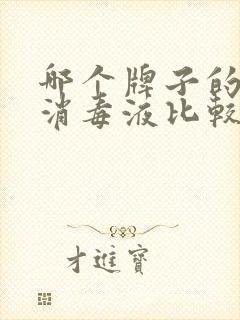 哪个牌子的
消毒液比较
才進寶